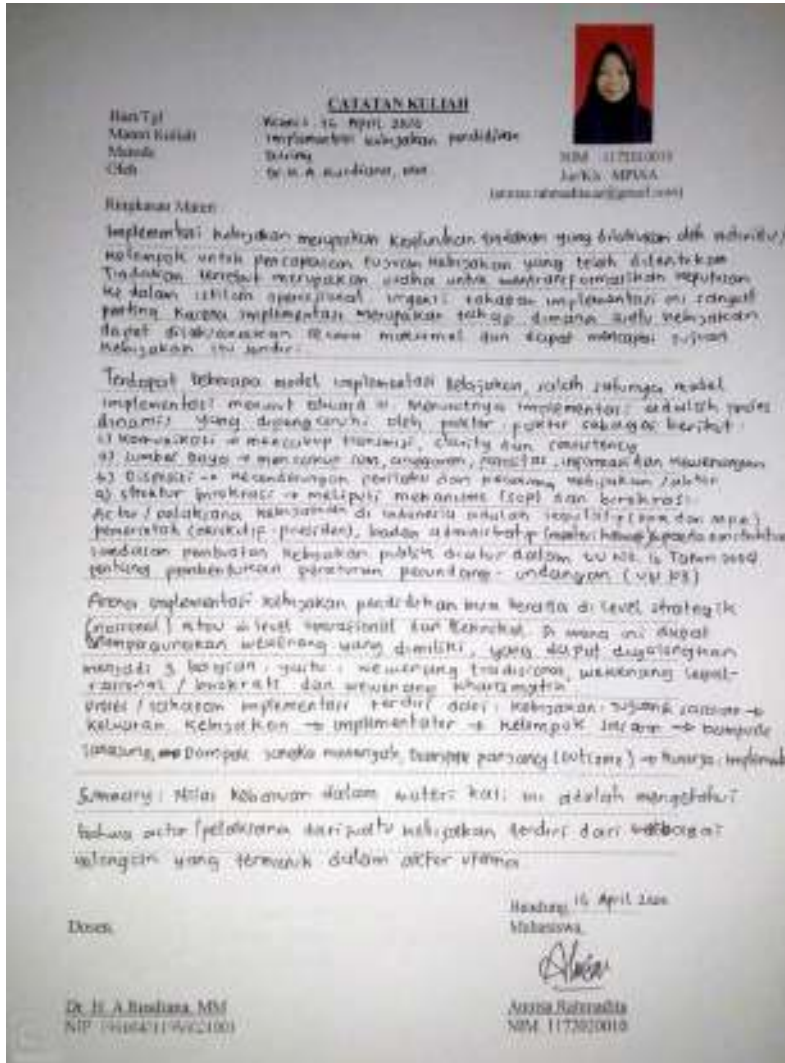 CATATAN KULIAH
Hari/Tgl : Kamis 16 April 2020
Materi Kuliah : Implementasi kebijakan pendidikan
Metode : Daring
Oleh : Dr. H. A. Rusdiana, MM
NIM 1172020010
Jur/Kls MPI/4A
Ringkasan Materi
Implementasi kebijakan merupakan tindakan yang dilakukan oleh individu/
kelompok untuk pencapaian tujuan kebijakan yang telah ditentukan
Tindakan tersebut merupakan usaha untuk mentransformasikan keputusan
ke dalam istilah operasional. urgensi tahapan implementasi ini sangat
penting karena implementasi merupakan tahap dimana suatu kebijakan
dapat dilaksanakan secara maksimal dan dapat mencapai tujuan
kebijakan itu sendiri.
Terdapat beberapa model implementasi kebijakan, salah satunya model
implementasi menurut Edward III. Menurutnya implementasi adalah proses
dinamis yang dipengaruhi oleh faktor faktor sebagai berikut :
1) Komunikasi → mencakup transmisi, clarity dan consistency
Sumber Daya → mencakup SDM, anggaran, fasilitas, informasi dan kewenangan
Disposisi → kecenderungan perilaku dan kebijakan /aktor
struktur birokrasi → meliputi mekanisme (sop) dan birokrasi.
Actor / pelaksana kebijakan di indonesia adalah legislatif (DPR dan MPR)
pemerintah (eksekutif - presiden), badan administratif
Landasan pembuatan kebijakan publik diatur dalam UU No. 10 Tahun 2004
tentang pembentukan peraturan perundang - undangan
Arena implementasi kebijakan pendidikan bisa berada di level strategik
(nasional) atau di level operasional dan teknikal. Di mana ini dapat
mempergunakan wewenang yang dimiliki, yang dapat digolongkan
menjadi 3 bagian, yaitu : wewenang tradisional, wewenang legal-
rasional / birokratis dan wewenang kharismatik.
proses / tahapan implementasi terdiri dari : kebijakan : tujuan sasaran →
keluaran kebijakan → implementator → kelompok sasaran → dampak
langsung, Dampak jangka menengah, Dampak panjang (outcome) → kinerja implementasi
Summary : Nilai kebaruan dalam materi kali ini adalah mengetahui
bahwa actor /pelaksana dari suatu kebijakan terdiri dari berbagai
kalangan yang termasuk dalam aktor utama
Bandung, 16 April 2020
Dosen, Mahasiswa,
Dr. H. A.Rusdiana, MM Annisa Rahmadita
NIP NIM 1172020010